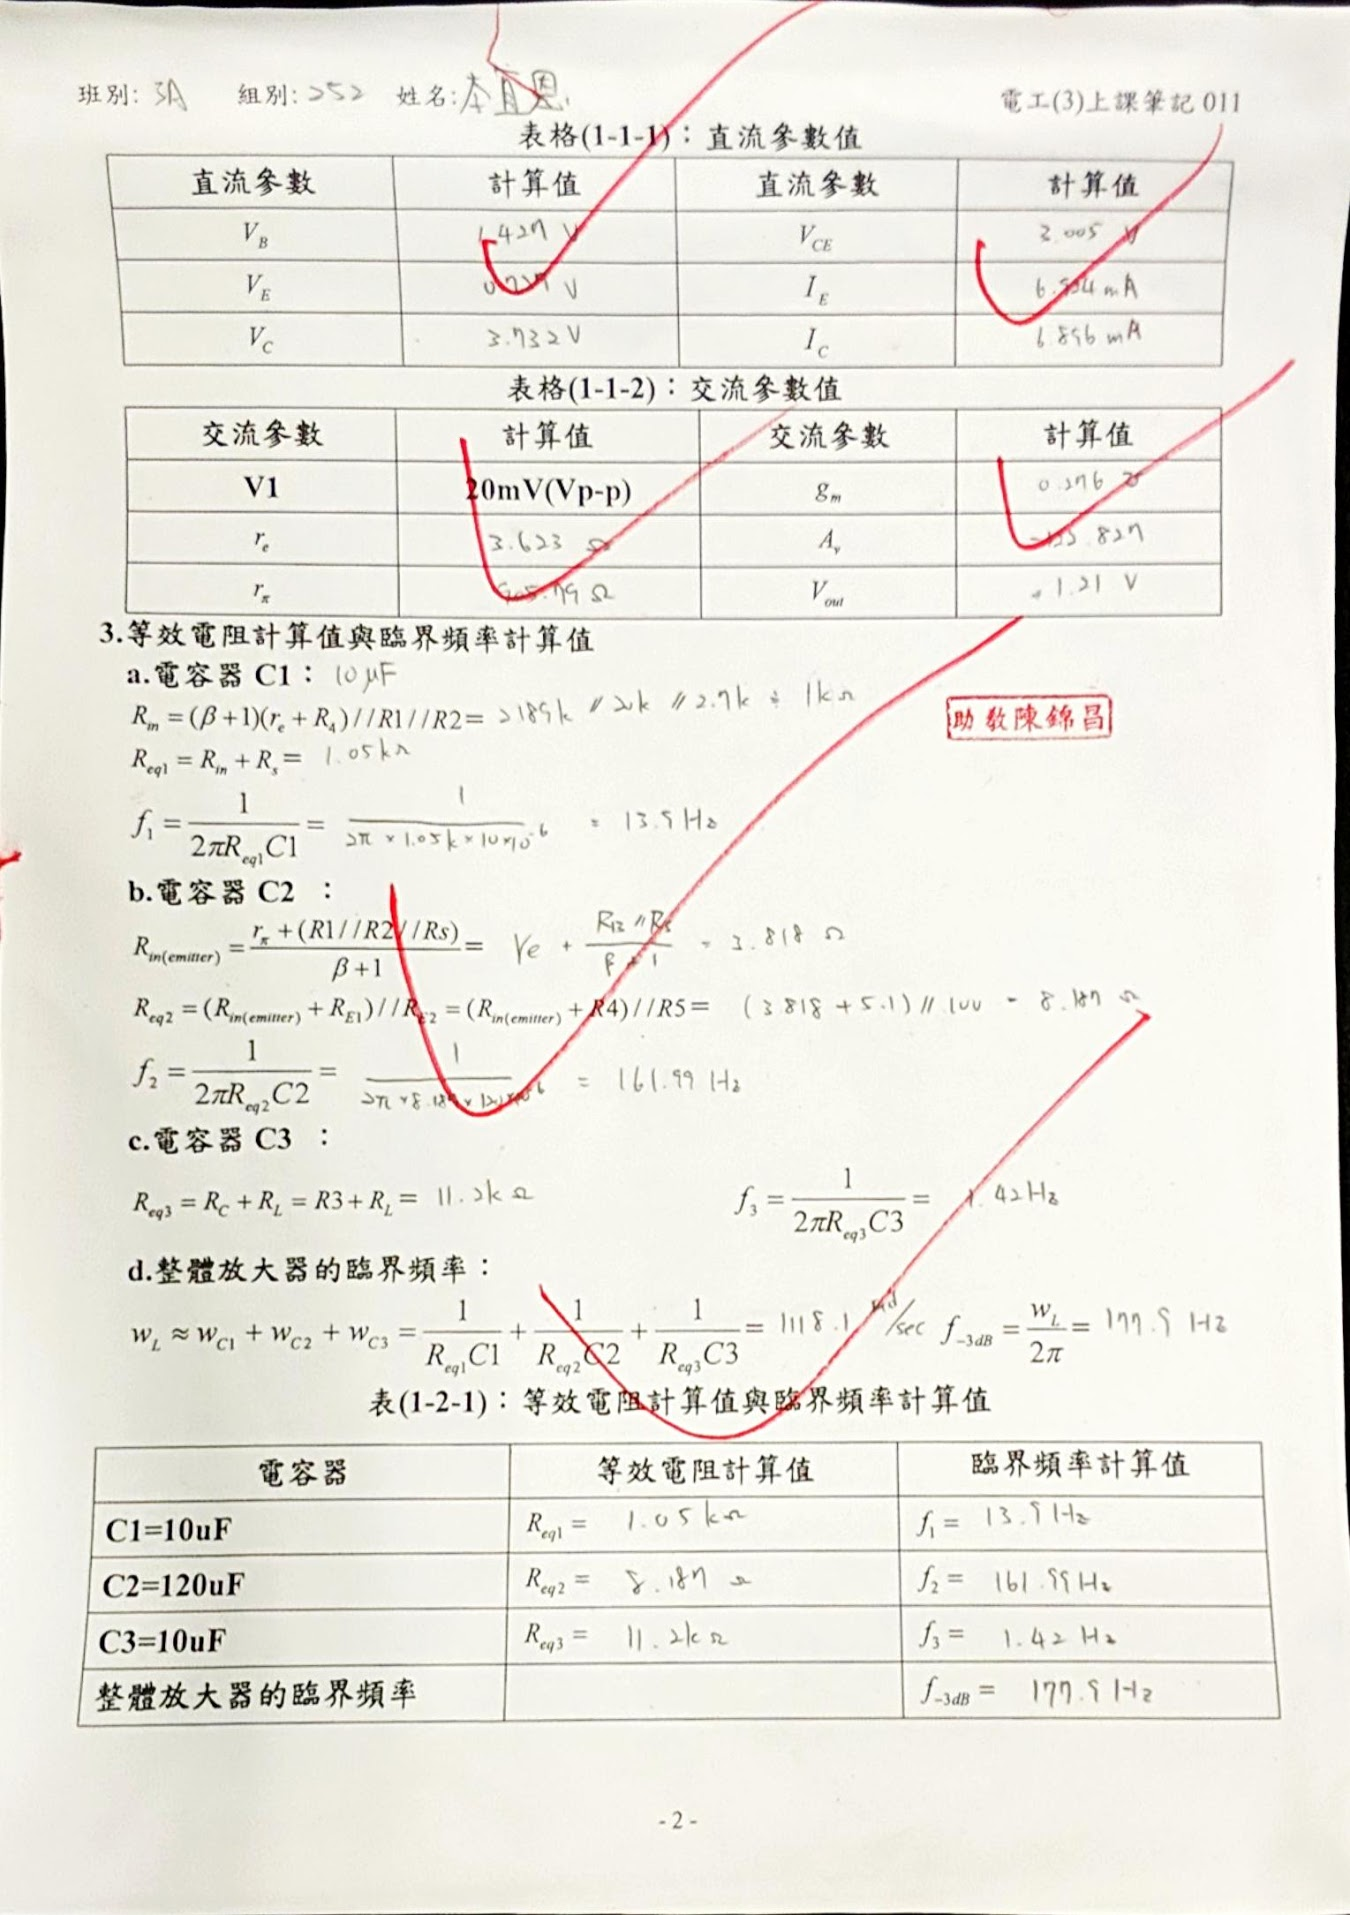 班別: 3A 組別: 252 姓名: 李宜恩 電工(3)上課筆記 011
表格(1-1-1)：直流參數值
直流參數 計算值 直流參數 計算值
V_B 1.427 V V_CE 3.005 V
V_E V I_E 6.924 mA
V_C 3.732 V I_C 6.896 mA
表格(1-1-2)：交流參數值
交流參數 計算值 交流參數 計算值
V1 20mV(Vp-p) g_m 0.276 ℧
r_e 3.623 Ω A_v 827
r_π 905.79 Ω V_out 1.21 V
3.等效電阻計算值與臨界頻率計算值
a.電容器 C1： 10μF
R_in = (β+1)(r_e + R_4)//R1//R2 = 2.189k // 20k // 2.7k ≒ 1kΩ
助教陳錦昌
R_eq1 = R_in + R_s = 1.05kΩ
f_1 = 1/(2πR_eq1C1) = 1/(2π×1.05k×10×10^-6) = 13.9 Hz
b.電容器 C2 ：
R_in(emitter) = (r_π + (R1//R2//Rs))/(β+1) = re + (R12//Rs)/(β+1) = 3.818 Ω
R_eq2 = (R_in(emitter) + R_E1)//R_E2 = (R_in(emitter) + R4)//R5 = (3.818 + 5.1)//100 = 8.187 Ω
f_2 = 1/(2πR_eq2C2) = 1/(2π×8.187×120×10^-6) = 161.99 Hz
c.電容器 C3 ：
R_eq3 = R_C + R_L = R3 + R_L = 11.2kΩ f_3 = 1/(2πR_eq3C3) = 1.42Hz
d.整體放大器的臨界頻率：
w_L ≈ w_C1 + w_C2 + w_C3 = 1/(R_eq1C1) + 1/(R_eq2C2) + 1/(R_eq3C3) = 1118.1 rad/sec f_-3dB = w_L/2π = 177.9 Hz
表(1-2-1)：等效電阻計算值與臨界頻率計算值
電容器 等效電阻計算值 臨界頻率計算值
C1=10uF R_eq1 = 1.05kΩ f_1 = 13.9Hz
C2=120uF R_eq2 = 8.187 Ω f_2 = 161.99Hz
C3=10uF R_eq3 = 11.2kΩ f_3 = 1.42 Hz
整體放大器的臨界頻率 f_-3dB = 177.9 Hz
- 2 -